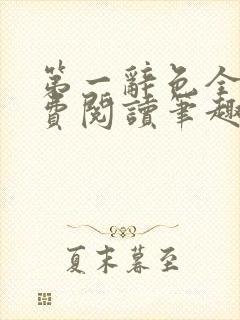 第一辭色全
費閱讀筆趣
夏末暮至